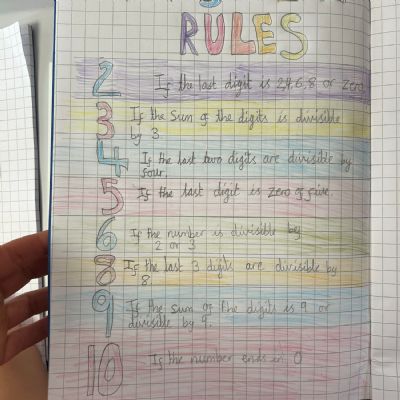 RULES
2 If the last digit is 2,4,6,8 or zero
3 If the sum of the digits is divisible
by 3.
4 If the last two digits are divisible by
four.
5 If the last digit is zero of five.
6 If the number is divisible by
2 or 3
8 If the last 3 digits are divisible by
8.
9 If the sum of the digits is 9 or
divisible by 9.
10 If the number ends in 0